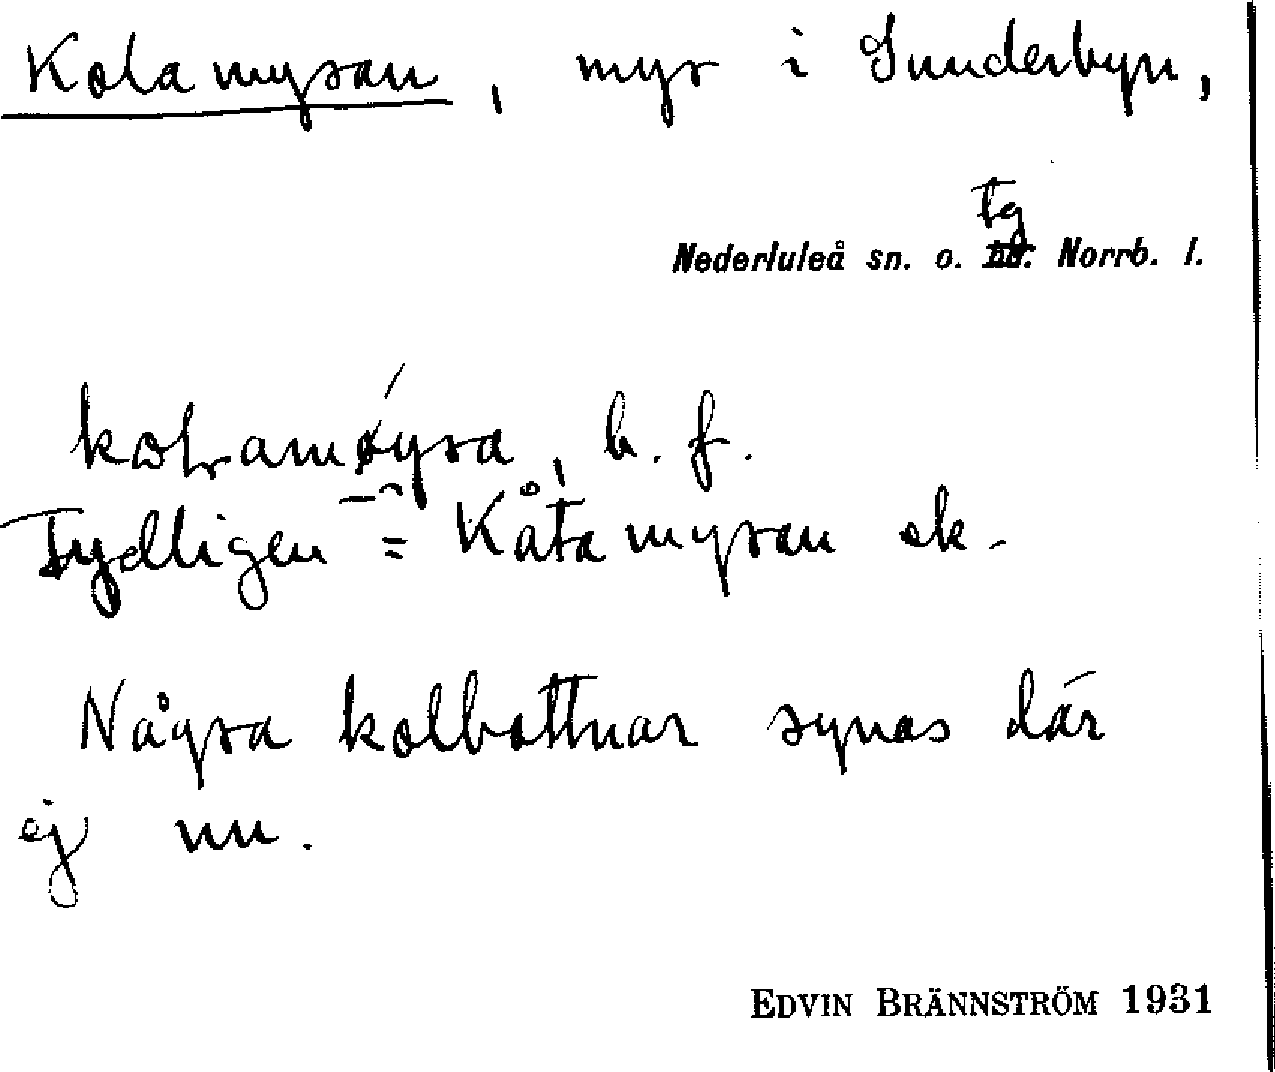 Kolamyran, myr i Sunderbyn,
tg
Nederluleå sn. o. hd. Norrb. l.
b. f.
Tydligen = Kåtamyran ek-
Några kolbottnar synas där
ej nu.
EDVIN BRÄNNSTRÖM 1931